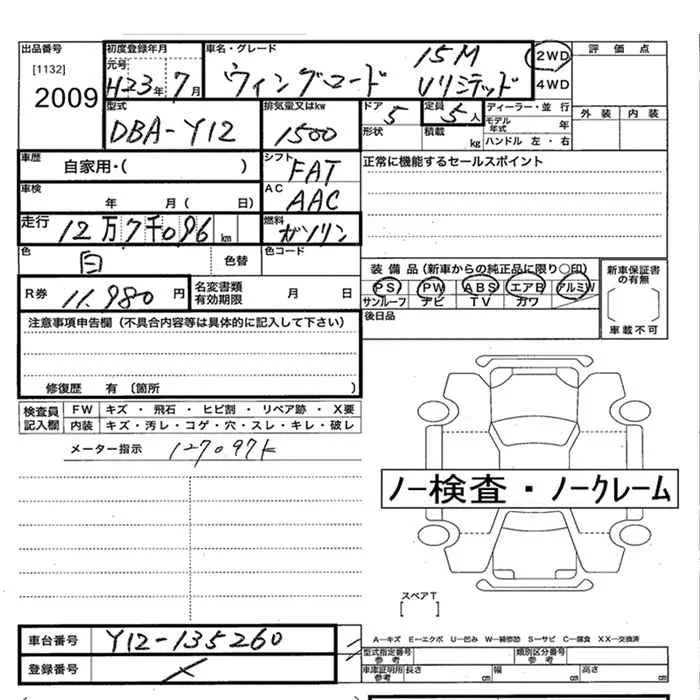 出品番号 初度登録年月 車名・グレード 15M 2WD 評価点
[1132] 元号 H23年 7月 ウィングロード Vリミテッド 4WD
2009
型式 排気量又はkw ドア 定員 ディーラー・並行 外装 内装
DBA-Y12 1500 5 5人 モデル年式 年
形状 積載 kg ハンドル 左・右
車歴 自家用・( ) シフト FAT 正常に機能するセールスポイント
車検 年 月( 日) AC AAC
走行 12万7千096km 燃料 ガソリン
色 白 色替 色コード 装備品(新車からの純正品に限り○印) 新車保証書の有無
R券 11,980円 名変書類有効期限 月 日 PS PW ABS エアB アルミW
サンルーフ ナビ TV カワ
注意事項申告欄(不具合内容等は具体的に記入して下さい) 後日品 車載不可
修復歴 有 (箇所 )
検査員記入欄 FW キズ ・ 飛石 ・ ヒビ割 ・ リペア跡 ・ X要
内装 キズ・汚レ・コゲ・穴・スレ・キレ・破レ
メーター指示 127097k
ノー検査・ノークレーム
スペアT
[ ]
車台番号 Y12-135260 A―キズ E―エクボ U―凹み W―補修跡 S―サビ C―腐食 XX―交換済
登録番号 型式指定番号 参考 類別区分番号 参考
車庫証明用参考 長さ cm 幅 cm 高さ cm